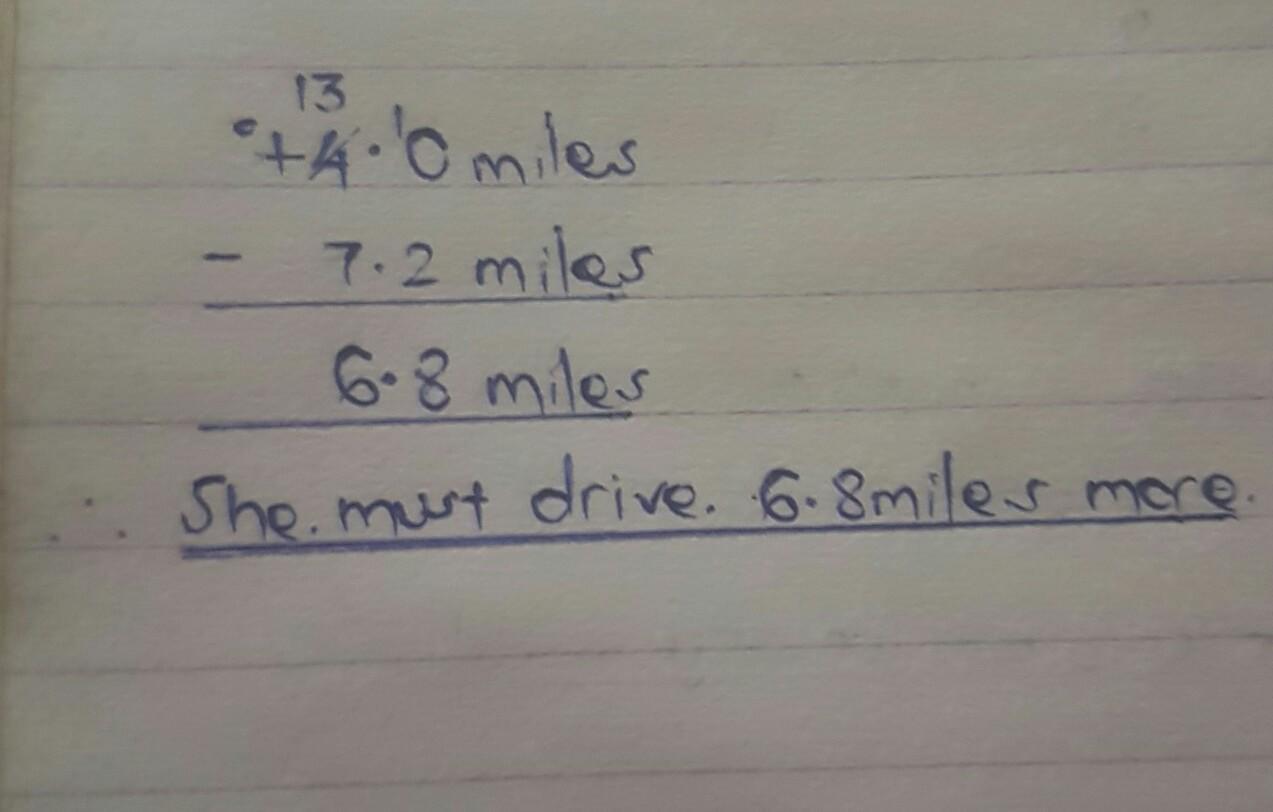 13
0 14.10 miles
- 7.2 miles
6.8 miles
∴ She. must drive. 6.8miles more.